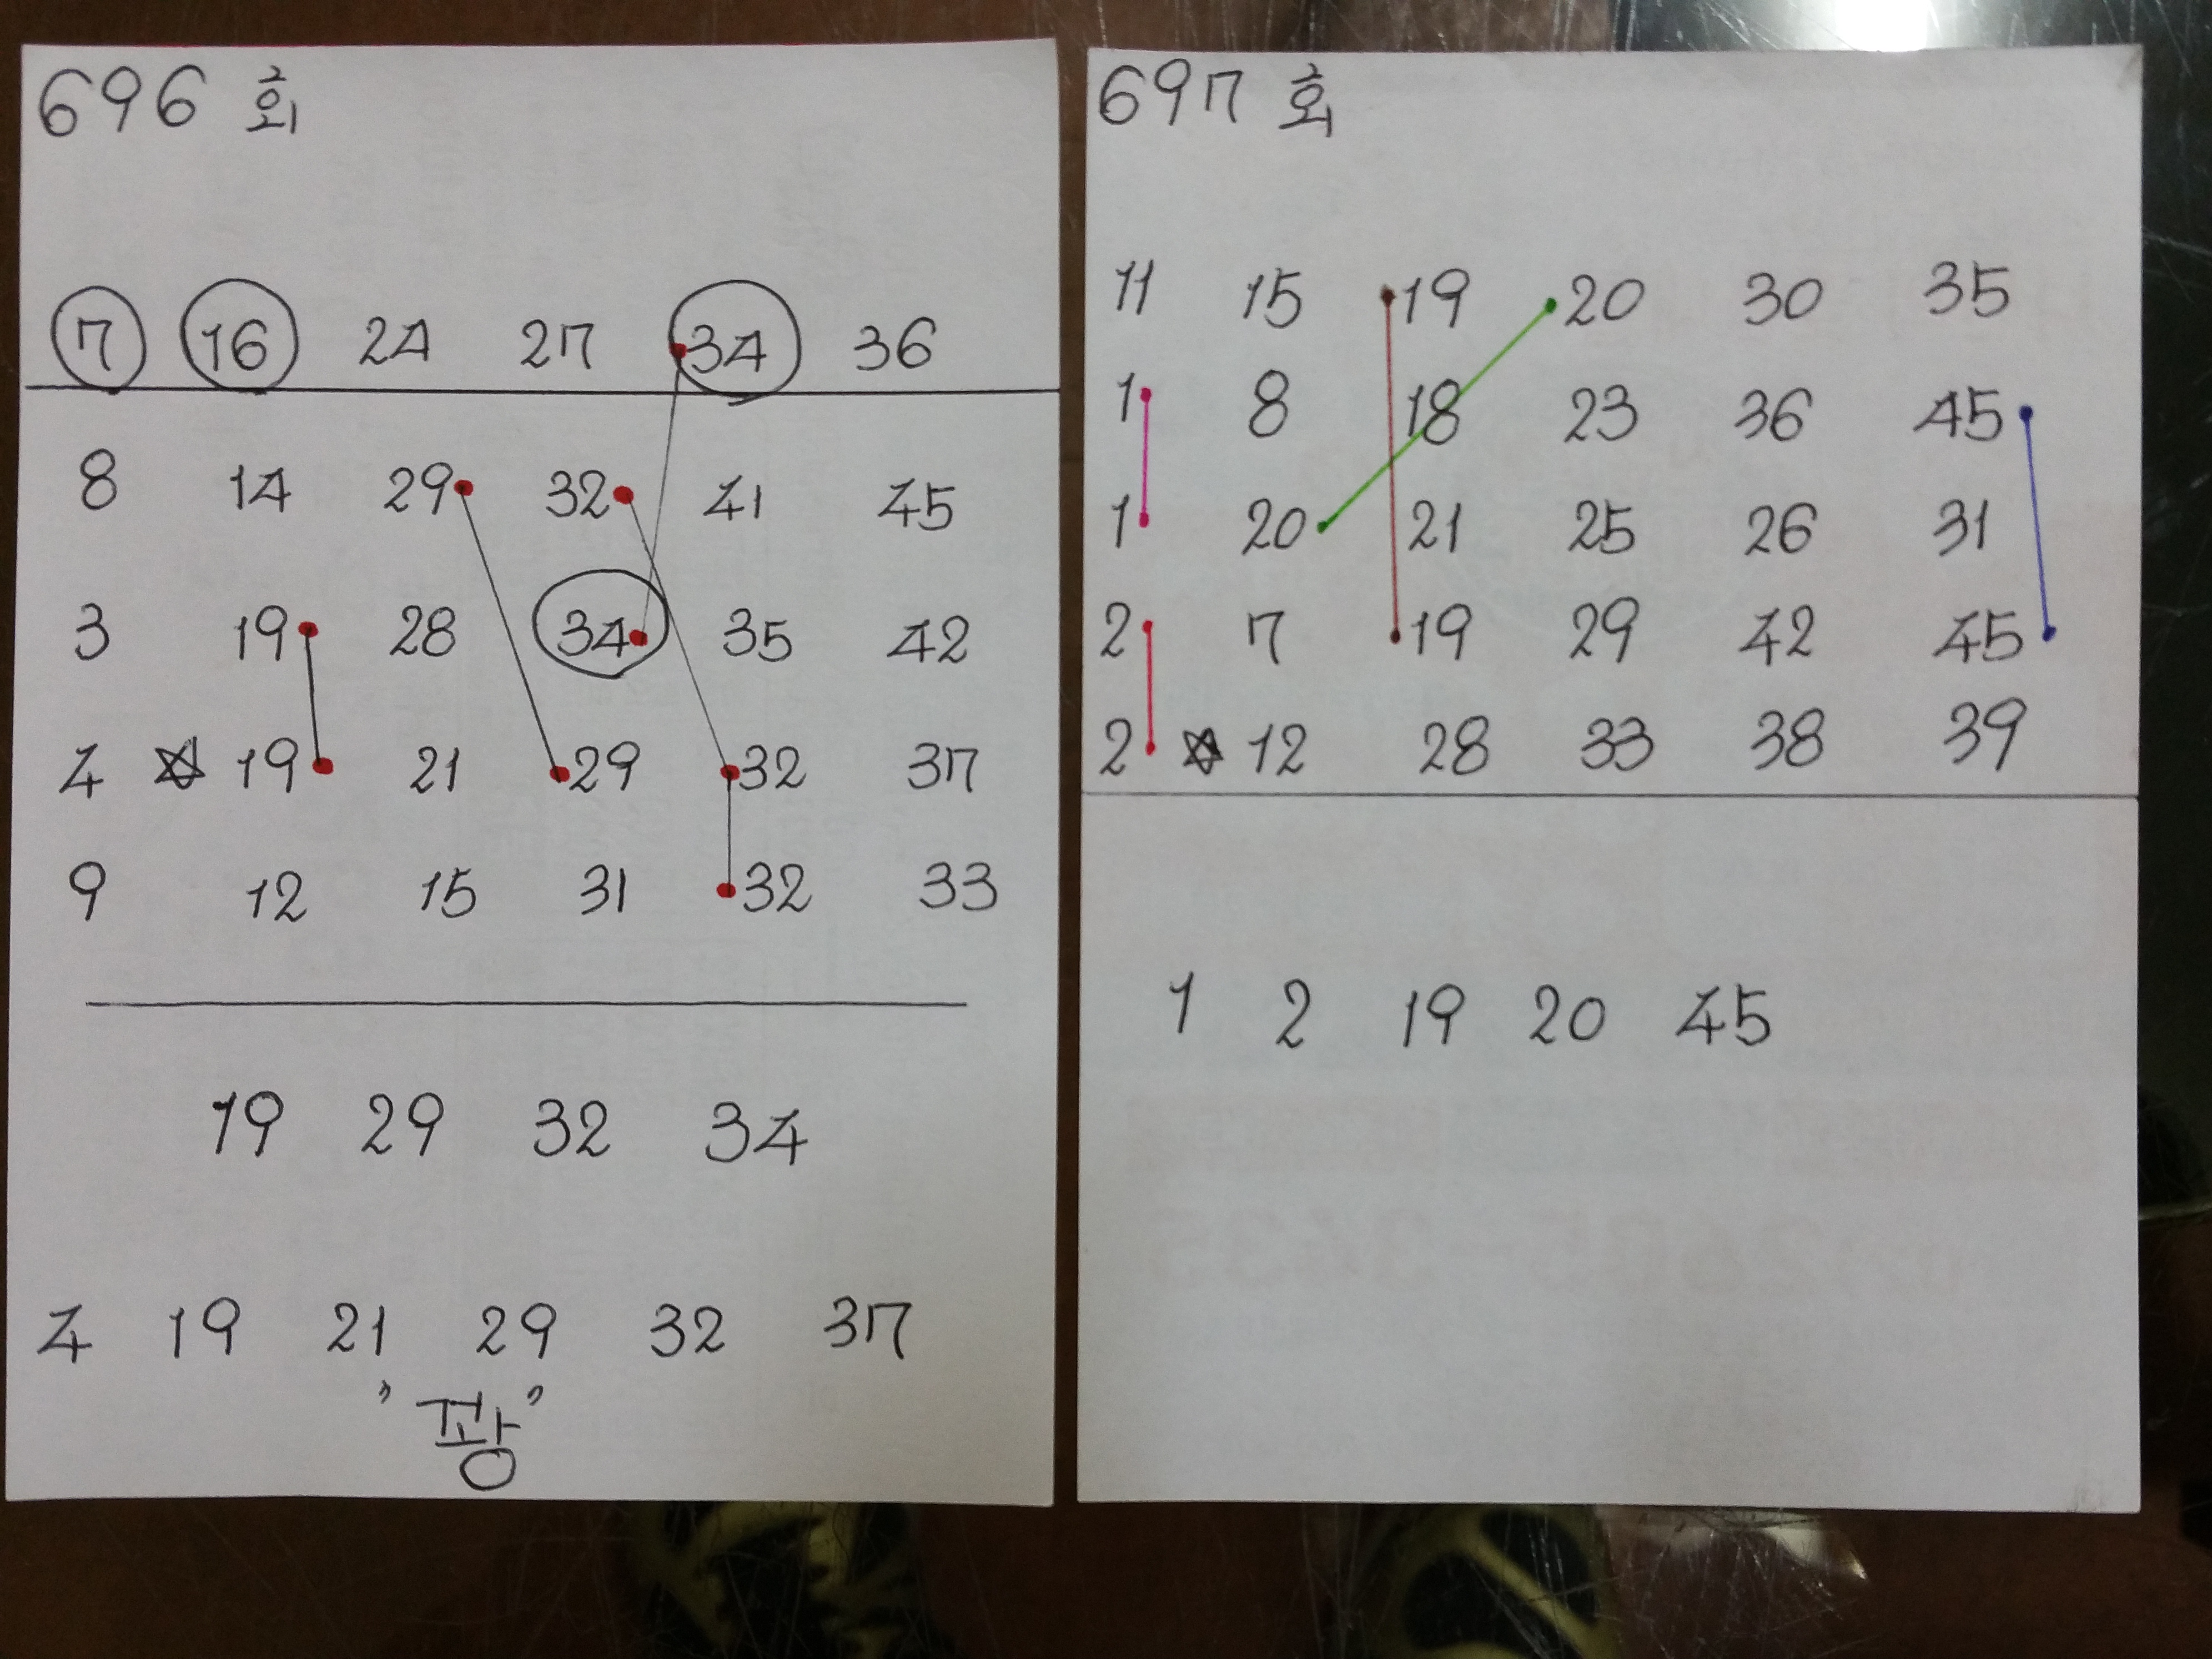 696 회
7 16 24 27 34 36
8 14 29 32 41 45
3 19 28 34 35 42
4 ☆ 19 21 29 32 37
9 12 15 31 32 33
19 29 32 34
4 19 21 29 32 37
"꽝"
697 회
11 15 19 20 30 35
1 8 18 23 36 45
1 20 21 25 26 31
2 7 19 29 42 45
2 ☆ 12 28 33 38 39
1 2 19 20 45